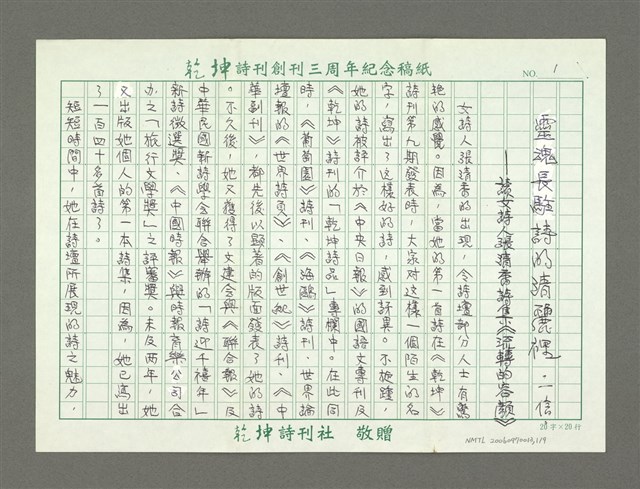 乾坤詩刊創刊三周年紀念稿紙
NO. 1
靈魂長駐詩的清麗裡 .一信
——讀女詩人張清香詩集《流轉的容顏》
女詩人張清香的出現，令詩壇部分人士有驚
艷的感覺。因為，當她的第一首詩在《乾坤》
詩刊第九期發表時，大家对這樣一個陌生的名
字，寫出了這樣好的詩，感到訝異。不旋踵，
她的詩被評介於《中央日報》的國語文專刊及
《乾坤》詩刊的「乾坤詩品」專欄中。在此同
時，《葡萄園》詩刊、《海鷗》詩刊、世界論
壇報的《世界詩頁》、《創世紀》詩刊、《中
華副刊》，都先後以顯著的版面發表了她的詩
。不久後，她又獲得了文建会與《聯合報》及
中華民國新詩學会聯合舉辦的「詩迎千禧年」
新詩徵選獎、《中國時報》與時報育樂公司合
办之「旅行文學獎」之評審獎。未及两年，她
又出版她個人的第一本詩集，因為，她已寫出
了一百四十多首詩了。
短短時間中，她在詩壇所展現的詩之魅力，
20字×20行
乾坤詩刊社 敬贈
NMTL 20060970013,1/9